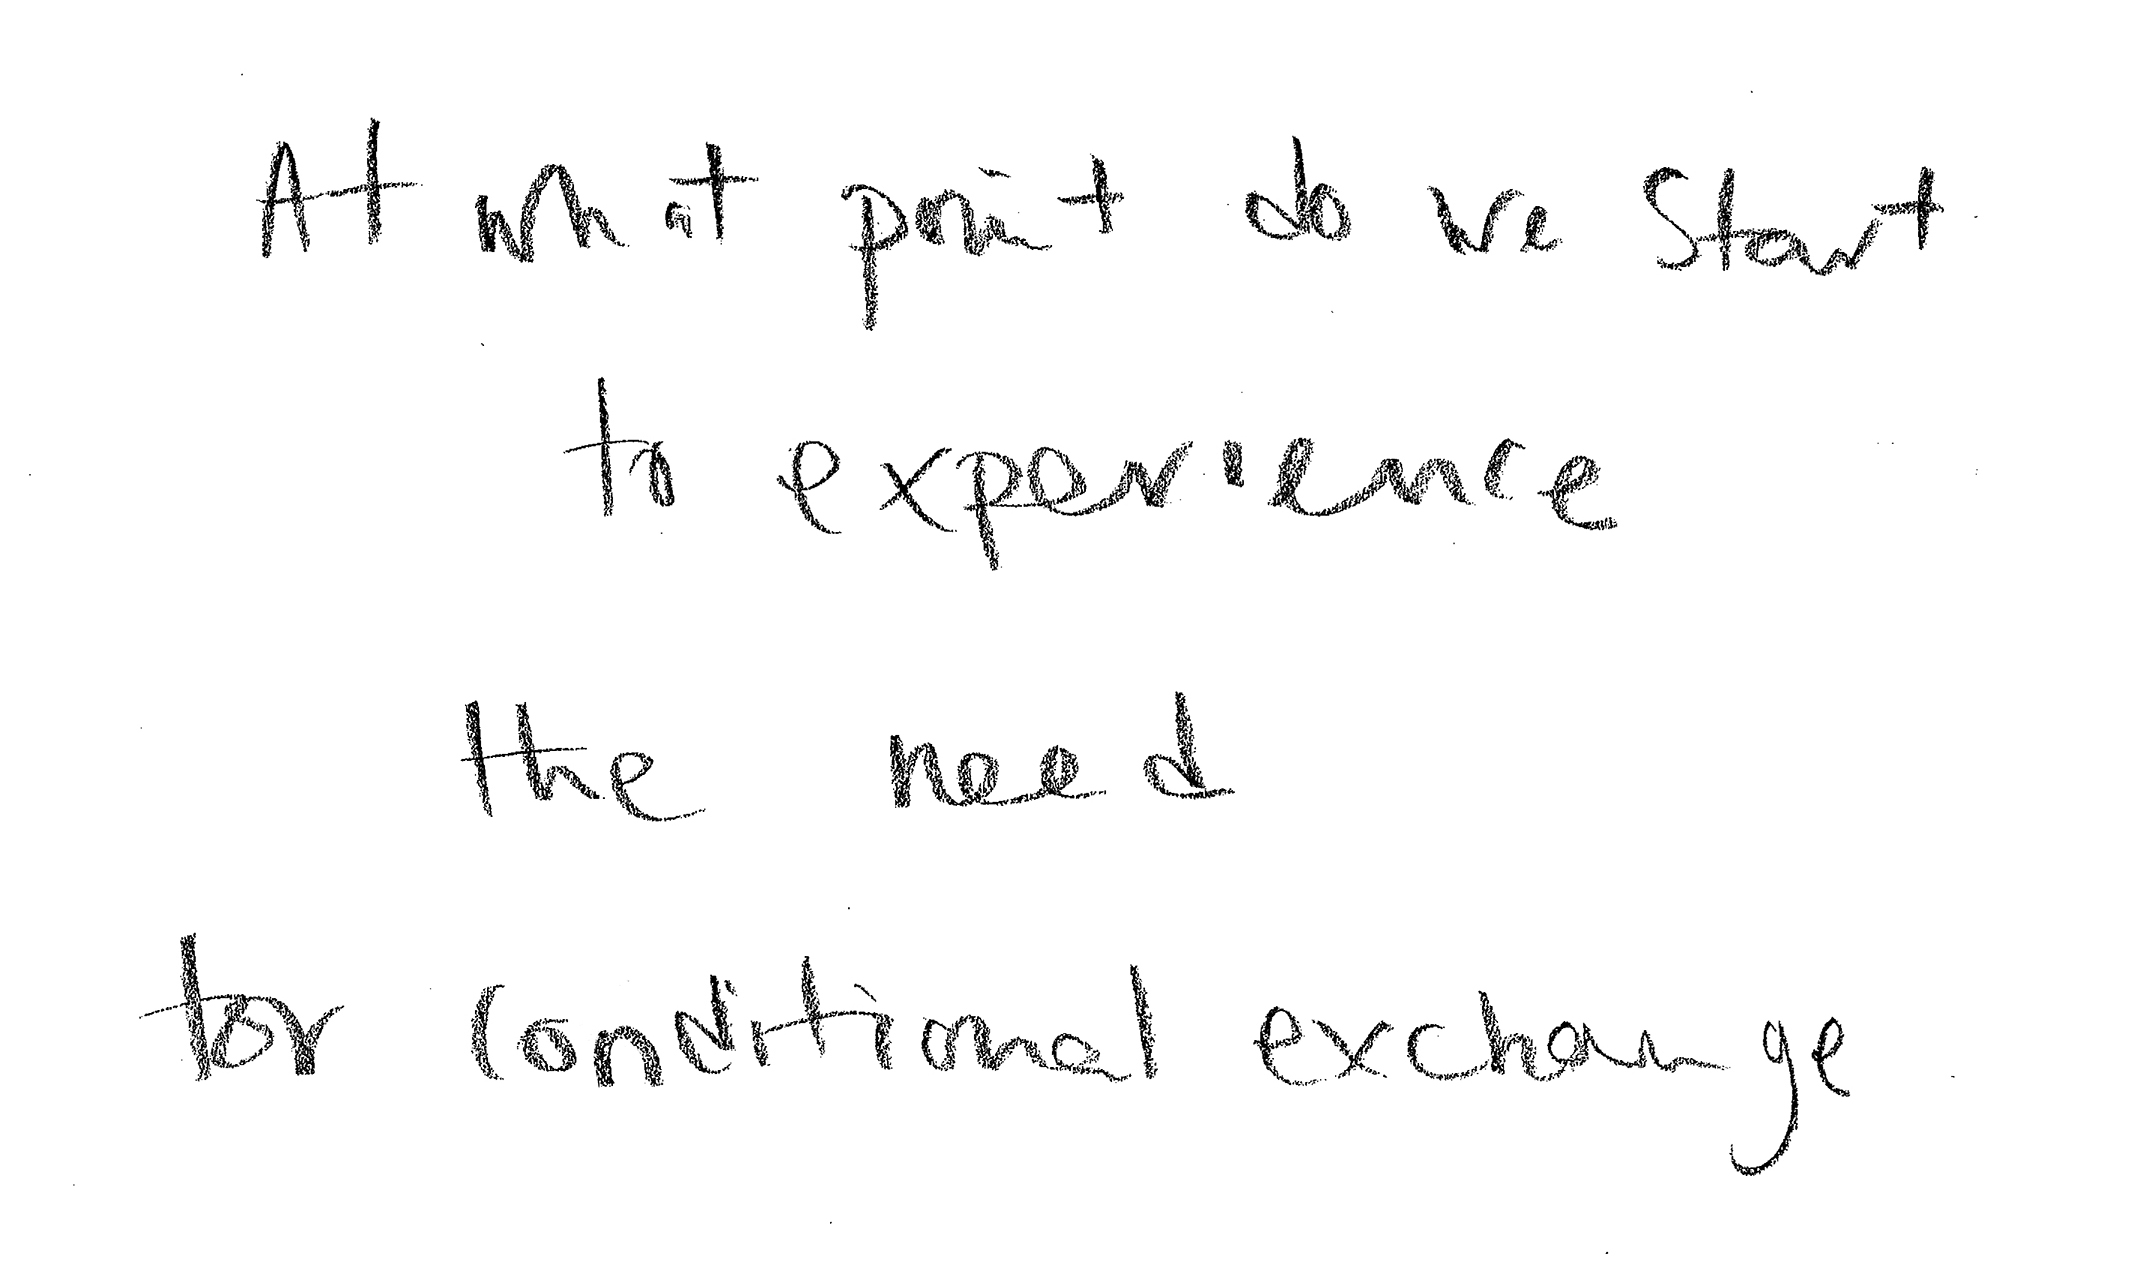 At what point do we start
to experience
the need
for conditional exchange